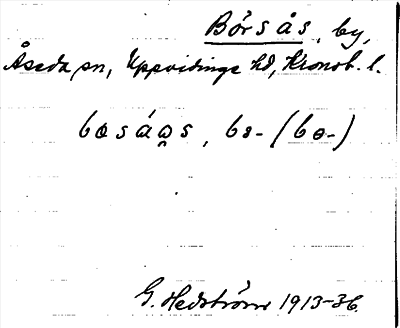 Börsås, by,
Åseda sn, Uppvidinge hd, Kronob. l.
bɵsá̀a̯s, bɵ- (bɵ-)
G. Hedström 1913-36.